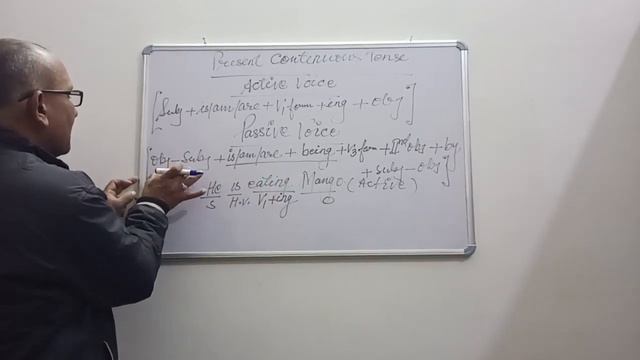 Present Continuous Tense
Active Voice
[Subj + is/am/are + V1 form + ing + obj]
Passive Voice
[obj - Subj + is/am/are + being + V3 form + IInd obj + by
+ Subj - obj]
He is eating Mango (Active)
S H.V. V1+ing O